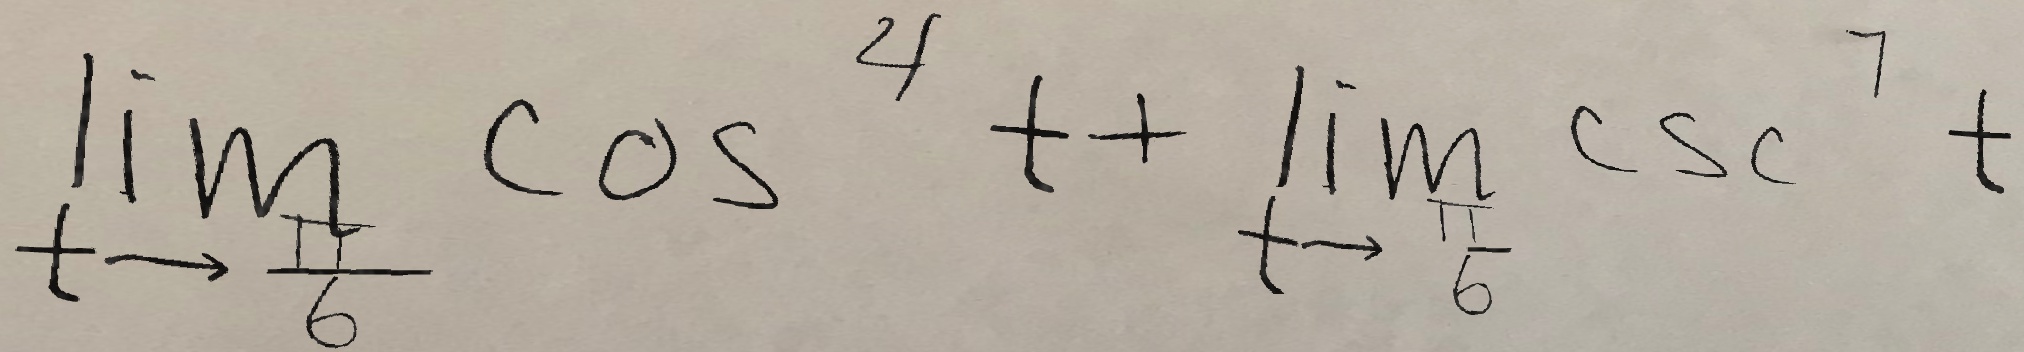 lim_{t→π/6} cos⁴ t + lim_{t→π/6} csc⁷ t